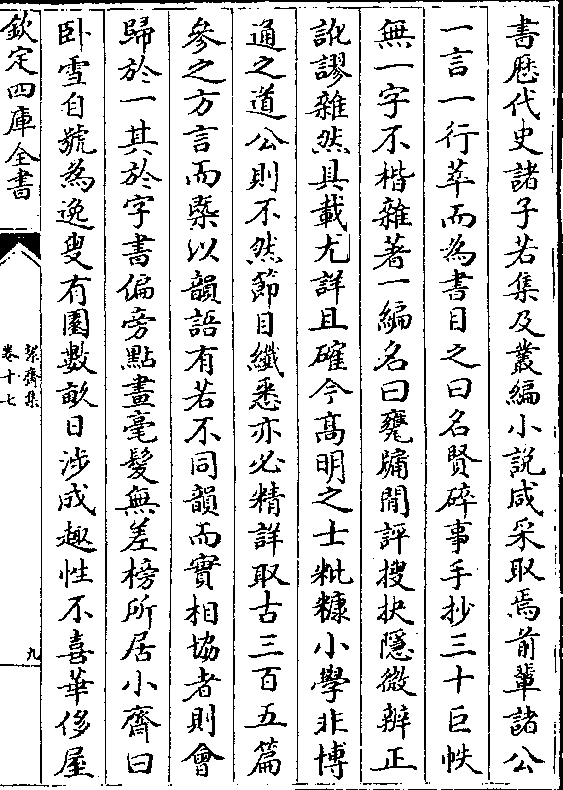 書歴代史諸子若集及叢編小説咸采取焉前輩諸公
一言一行萃而為書目之曰名賢碎事手抄三十巨帙
無一字不楷雜著一編名曰甕牖閒評搜抉隱微辨正
訛謬雜然具載尤詳且確今髙明之士粃糠小學非博
通之道公則不然節目纎悉亦必精詳取古三百五篇
參之方言而槩以韻語有若不同韻而實相協者則㑹
歸於一其於字書偏旁㸃畫毫髮無差榜所居小齊曰
卧雪自號為逸叟有園數畝日涉成趣性不喜華侈屋
欽定四庫全書
絜齊集
卷十七
九